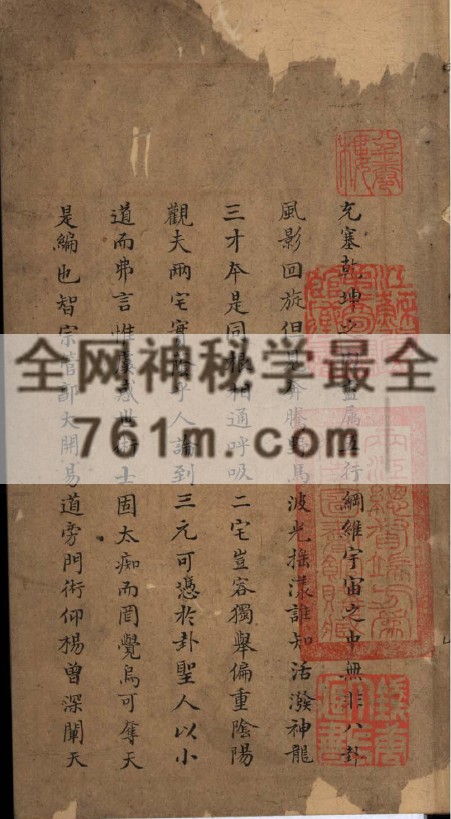 充塞乾坤之屬五行綱維宇宙之中無非八卦
風影回旋但奔騰野馬波光搖漾誰知活潑神龍
三才夲是同根相通呼吸二宅豈容獨舉偏重陰陽
觀夫兩宅實乎人論到三元可憑於卦聖人以小
道而弗言惟惑世術士固太痴而罔覺烏可奪天
是編也智宗管郭大開易道旁門術仰楊曾深闡天
全网神秘学最全
761m.com